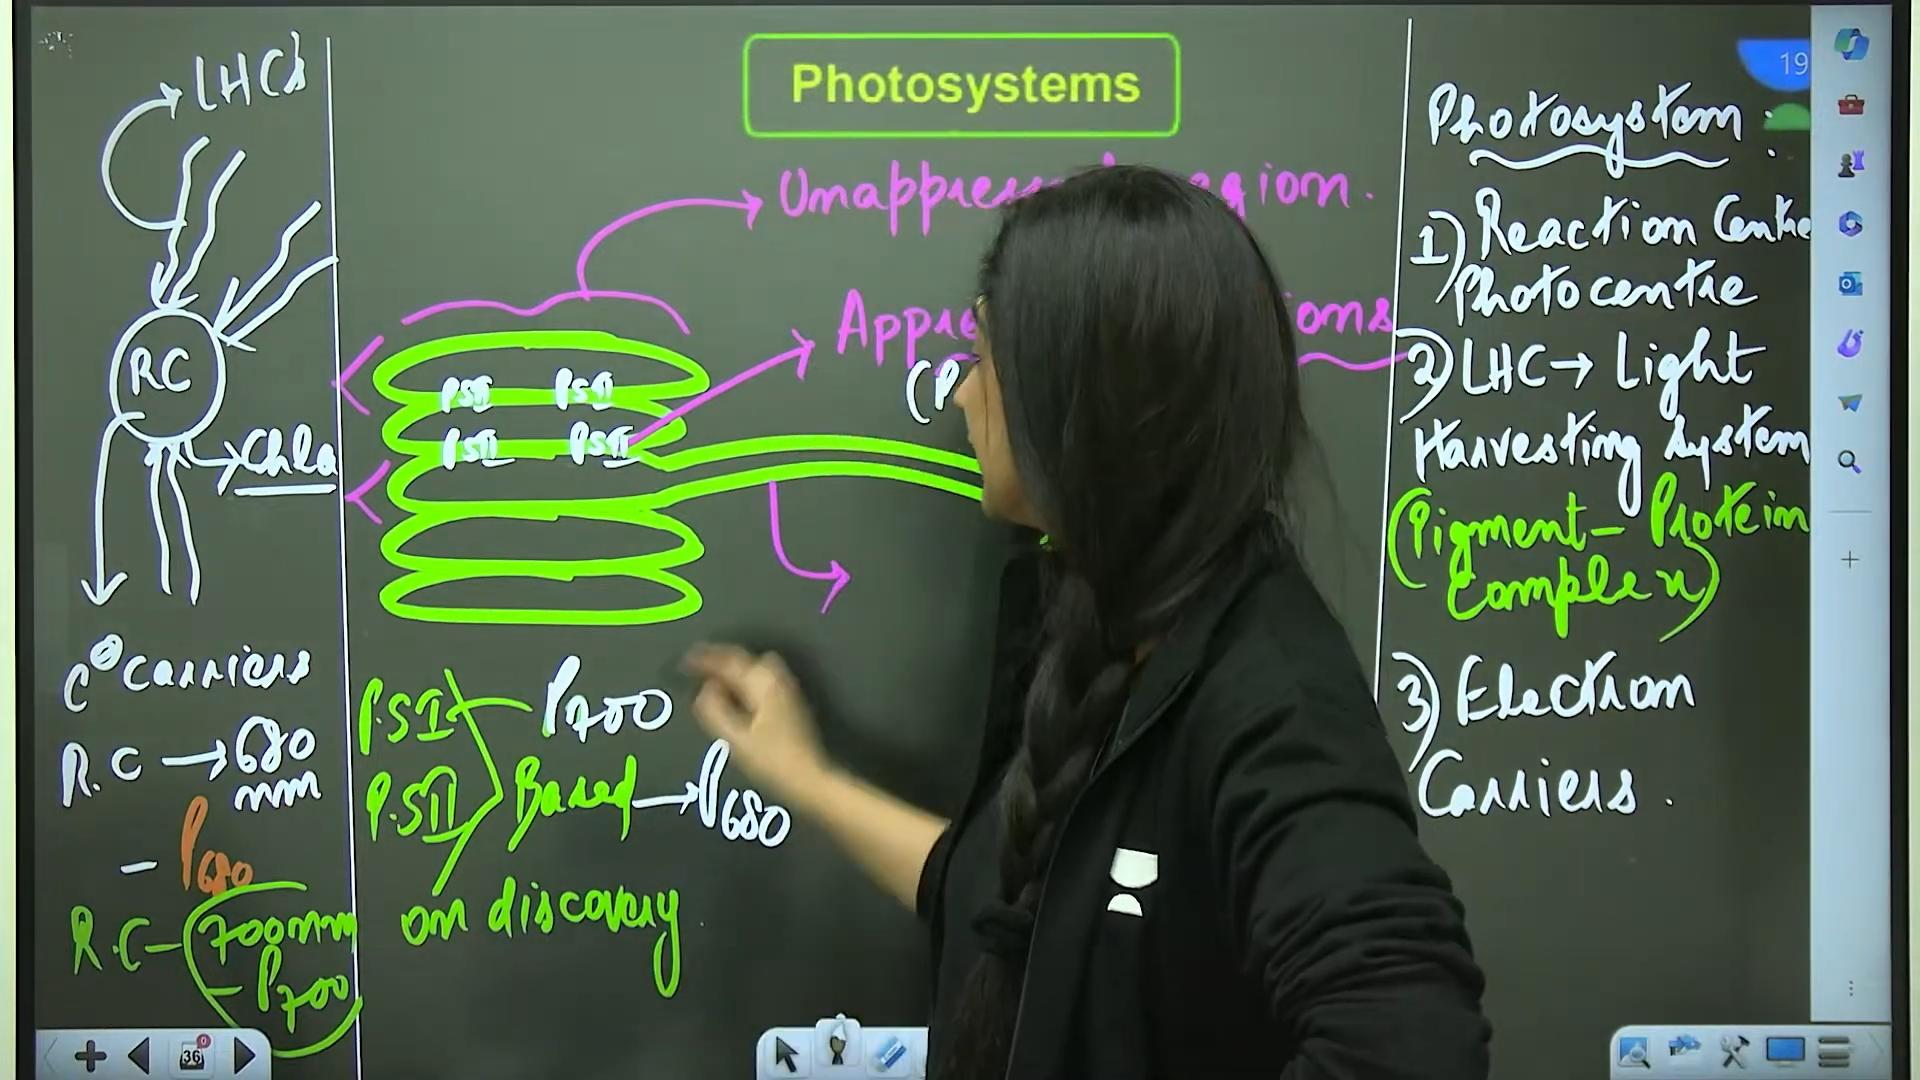 Photosystems
LHC's
RC
Chla
e⊖ carriers
R.C → 680
nm
- P680
R.C - 700nm
- P700
Unappre gion.
Appre ons
(P
PSII PSII
PSII PSII
P.SI P700
P.SII Based → P680
on discovery.
19
Photosystem :
1) Reaction Centre
Photocentre
2) LHC → Light
Harvesting System
(Pigment- Protein
Complex)
3) Electron
Carriers.
36
0